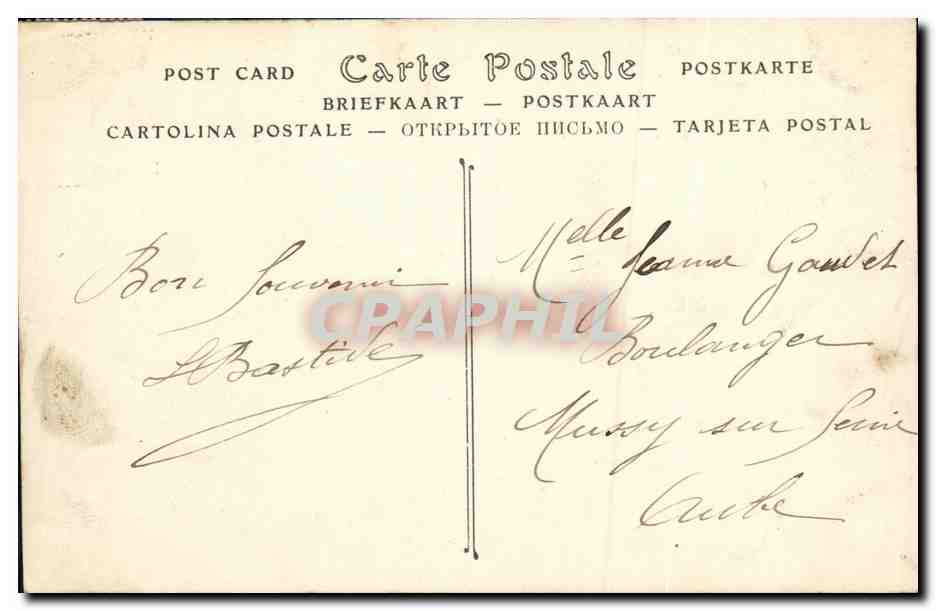 POST CARD Carte Postale POSTKARTE
BRIEFKAART — POSTKAART
CARTOLINA POSTALE — ОТКРЫТОЕ ПИСЬМО — TARJETA POSTAL
Bon Souvenir
LBastide
Melle Jeanne Gaudet
Boulanger
Mussy sur Seine
Aube
CPAPHIL